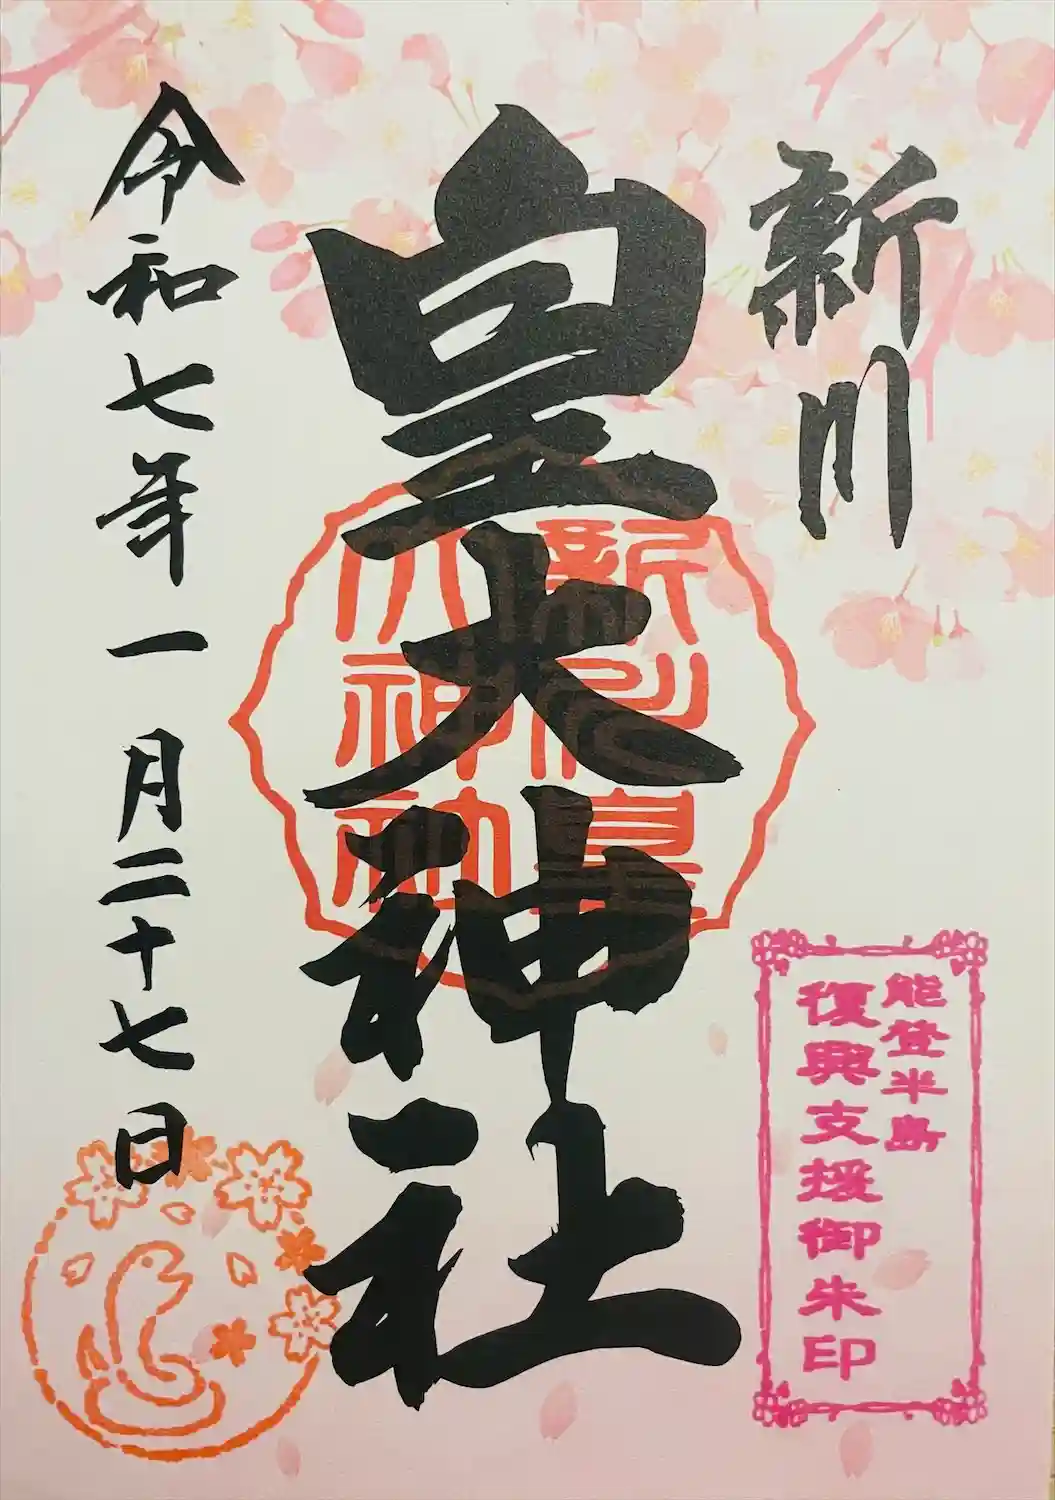 新川
皇大神社
令和七年一月二十七日
新川皇
大神社
能登半島
復興支援御朱印